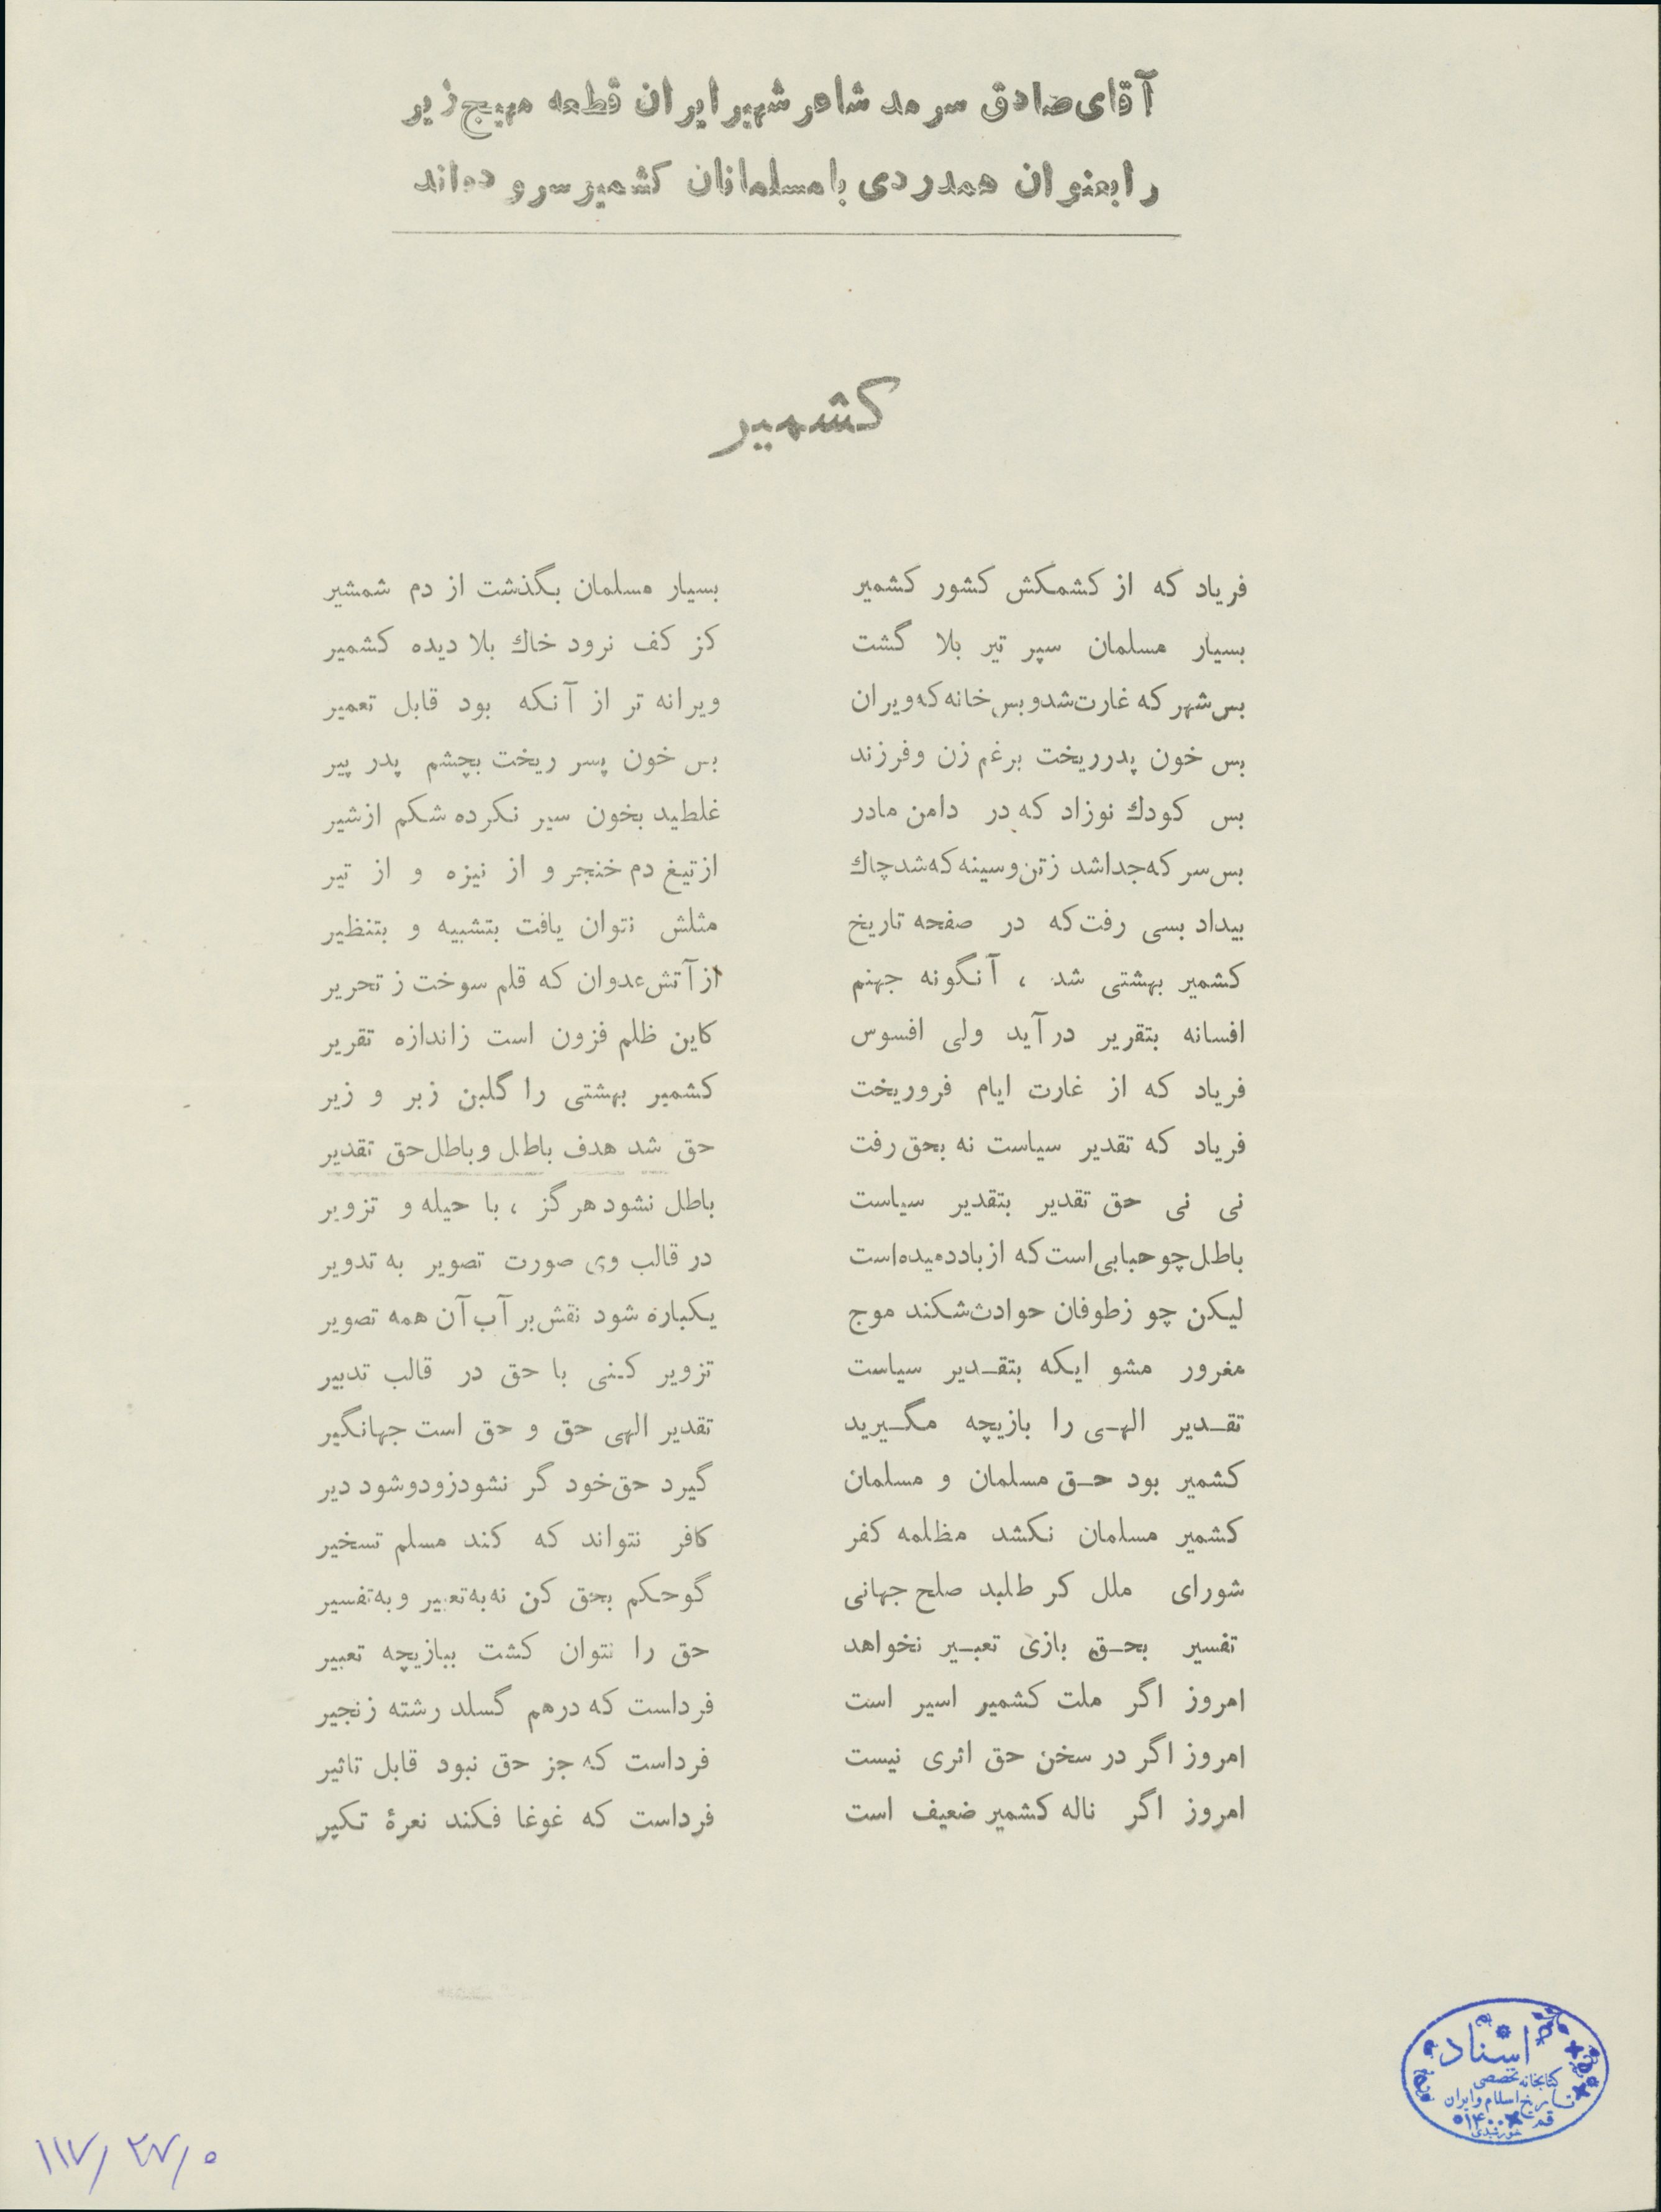 آقای صادق سرمد شاعر شهیر ایران قطعه مهیج زیر
را بعنوان همدردی با مسلمانان کشمیر سروده‌اند
کشمیر
فریاد که از کشمکش کشور کشمیر بسیار مسلمان بگذشت از دم شمشیر
بسیار مسلمان سپر تیر بلا گشت کز کف نرود خاك بلا دیده کشمیر
بس شهر که غارت شد و بس خانه که ویران ویرانه تر از آنکه بود قابل تعمیر
بس خون پدر ریخت برغم زن و فرزند بس خون پسر ریخت بچشم پدر پیر
بس کودك نوزاد که در دامن مادر غلطید بخون سیر نکرده شکم از شیر
بس سر که جدا شد ز تن و سینه که شد چاك از تیغ دم خنجر و از نیزه و از تیر
بیداد بسی رفت که در صفحه تاریخ مثلش نتوان یافت بتشبیه و بتنظیر
کشمیر بهشتی شد ، آنگونه جهنم از آتش عدوان که قلم سوخت ز تحریر
افسانه بتقریر درآید ولی افسوس کاین ظلم فزون است ز اندازه تقریر
فریاد که از غارت ایام فروریخت کشمیر بهشتی را گلبن زبر و زیر
فریاد که تقدیر سیاست نه بحق رفت حق شد هدف باطل و باطل حق تقدیر
نی نی حق تقدیر بتقدیر سیاست باطل نشود هرگز ، با حیله و تزویر
باطل چو حبابی است که از باد دمیده است در قالب وی صورت تصویر به تدویر
لیکن چو ز طوفان حوادث شکند موج یکباره شود نقش بر آب آن همه تصویر
مغرور مشو ایکه بتقـدیر سیاست تزویر کـنی با حق در قالب تدبیر
تقـدیر الهـی را بازیچه مگـیرید تقدیر الهی حق و حق است جهانگیر
کشمیر بود حـق مسلمان و مسلمان گیرد حق خود گر نشود زود و شود دیر
کشمیر مسلمان نکشد مظلمه کفر کافر نتواند که کند مسلم تسخیر
شورای ملل کر طلبد صلح جهانی گو حکم بحق کن نه به تعبیر و به تفسیر
تفسیر بحـق بازی تعبـیر نخواهد حق را نتوان کشت ببازیچه تعبیر
امروز اگر ملت کشمیر اسیر است فرداست که درهم گسلد رشته زنجیر
امروز اگر در سخن حق اثری نیست فرداست که جز حق نبود قابل تاثیر
امروز اگر ناله کشمیر ضعیف است فرداست که غوغا فکند نعرۀ تکیر
اسناد
کتابخانه تخصصی
تاریخ اسلام و ایران
قم ۱۴۰۰
خورشیدی
۱۱۷/۲۷/۰